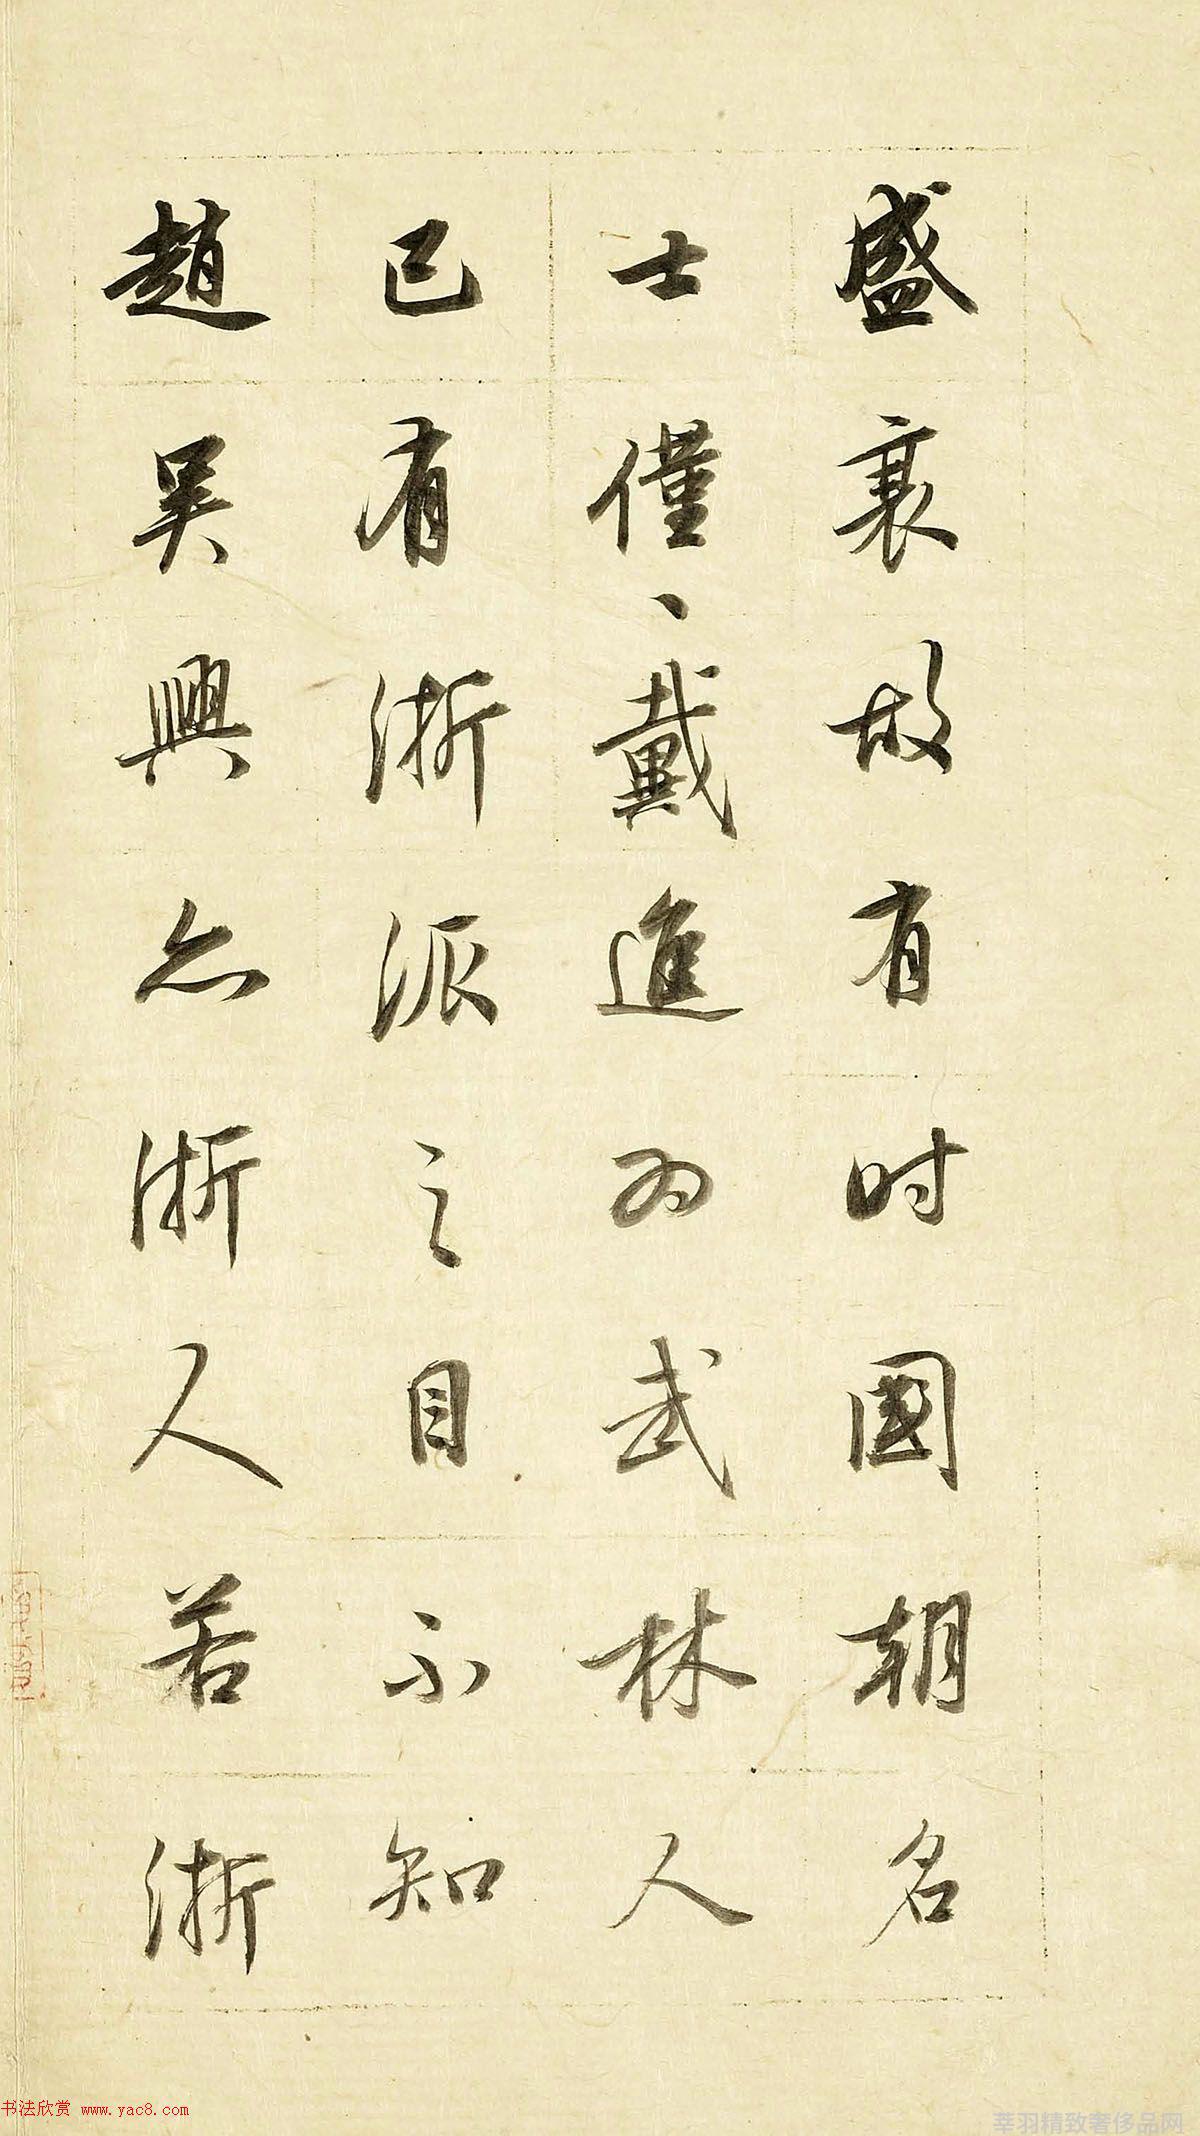 盛衰故有时國朝名
士僅、戴進为武林人
已有浙派之目不知
趙吳興亦浙人若浙
书法欣赏 www.yac8.com
莘羽精致奢侈品网